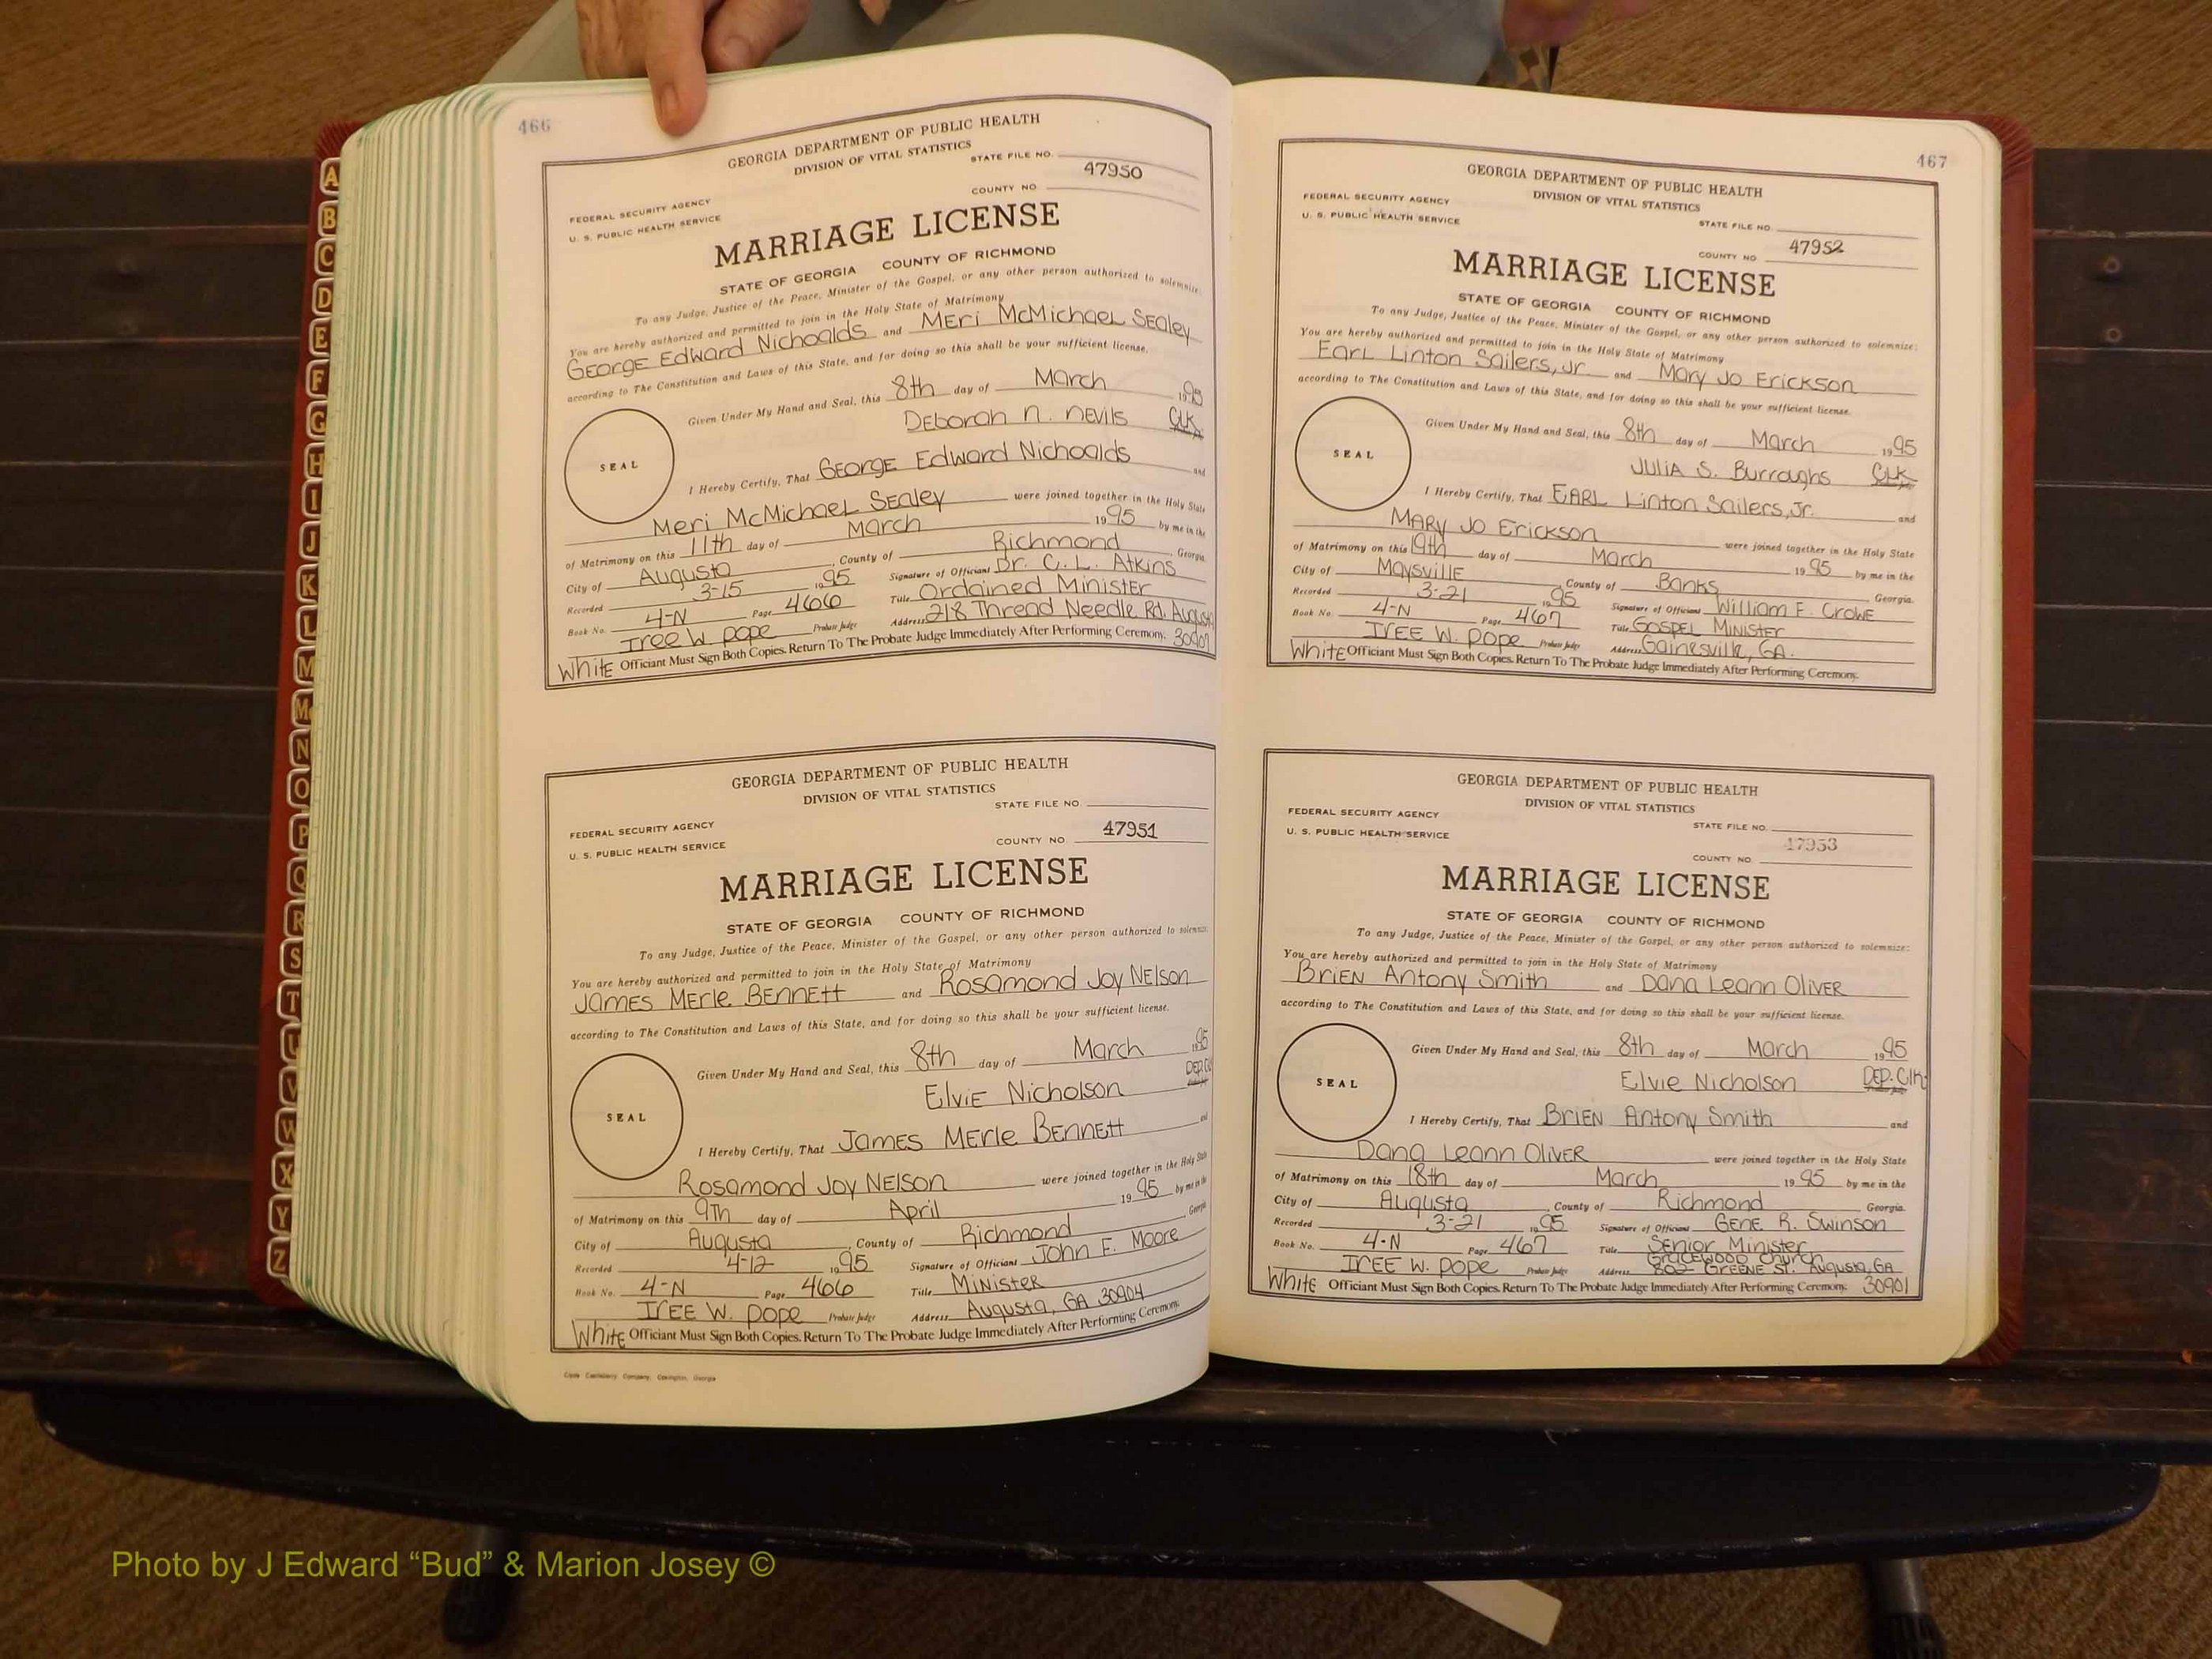 A
B
C
D
E
F
G
H
I
J
K
L
M
Mc
N
O
P
Q
R
S
T
U
V
W
X
Y
Z
466
GEORGIA DEPARTMENT OF PUBLIC HEALTH
DIVISION OF VITAL STATISTICS
STATE FILE NO.
47950
COUNTY NO
FEDERAL SECURITY AGENCY
U. S. PUBLIC HEALTH SERVICE
MARRIAGE LICENSE
STATE OF GEORGIA COUNTY OF RICHMOND
To any Judge, Justice of the Peace, Minister of the Gospel, or any other person authorized to solemnize:
You are hereby authorized and permitted to join in the Holy State of Matrimony
George Edward Nichoalds and Meri McMichael Sealey
according to The Constitution and Laws of this State, and for doing so this shall be your sufficient license.
Given Under My Hand and Seal, this 8th day of March 1995
Deborah N. Nevils Clk
SEAL
I Hereby Certify, That George Edward Nichoalds and
Meri McMichael Sealey were joined together in the Holy State
of Matrimony on this 11th day of March 1995 by me in the
City of Augusta, County of Richmond, Georgia
Recorded 3-15 1995 Signature of Officiant Dr. C. L. Atkins
Book No. 4-N Page 466 Title Ordained Minister
Iree W. Pope Probate Judge Address 218 Thread Needle Rd. Augusta
White Officiant Must Sign Both Copies. Return To The Probate Judge Immediately After Performing Ceremony. 30907
GEORGIA DEPARTMENT OF PUBLIC HEALTH
DIVISION OF VITAL STATISTICS
STATE FILE NO.
FEDERAL SECURITY AGENCY
47951
COUNTY NO
U. S. PUBLIC HEALTH SERVICE
MARRIAGE LICENSE
STATE OF GEORGIA COUNTY OF RICHMOND
To any Judge, Justice of the Peace, Minister of the Gospel, or any other person authorized to solemnize:
You are hereby authorized and permitted to join in the Holy State of Matrimony
James Merle Bennett and Rosamond Joy Nelson
according to The Constitution and Laws of this State, and for doing so this shall be your sufficient license.
Given Under My Hand and Seal, this 8th day of March 1995
Elvie Nicholson Dep. Clk
SEAL
I Hereby Certify, That James Merle Bennett and
Rosamond Joy Nelson were joined together in the Holy State
of Matrimony on this 9th day of April 1995 by me in the
City of Augusta, County of Richmond Georgia
Recorded 4-12 1995 Signature of Officiant John F. Moore
Book No. 4-N Page 466 Title Minister
Iree W. Pope Probate Judge Address Augusta, GA 30904
White Officiant Must Sign Both Copies. Return To The Probate Judge Immediately After Performing Ceremony.
467
GEORGIA DEPARTMENT OF PUBLIC HEALTH
DIVISION OF VITAL STATISTICS
FEDERAL SECURITY AGENCY
U. S. PUBLIC HEALTH SERVICE
STATE FILE NO.
47952
COUNTY NO
MARRIAGE LICENSE
STATE OF GEORGIA COUNTY OF RICHMOND
To any Judge, Justice of the Peace, Minister of the Gospel, or any other person authorized to solemnize:
You are hereby authorized and permitted to join in the Holy State of Matrimony
Earl Linton Sailers, Jr. and Mary Jo Erickson
according to The Constitution and Laws of this State, and for doing so this shall be your sufficient license.
Given Under My Hand and Seal, this 8th day of March 1995
Julia S. Burroughs Clk
SEAL
I Hereby Certify, That Earl Linton Sailers, Jr. and
Mary Jo Erickson were joined together in the Holy State
of Matrimony on this 19th day of March 1995 by me in the
City of Maysville, County of Banks, Georgia.
Recorded 3-21 1995 Signature of Officiant William F. Crowe
Book No. 4-N Page 467 Title Gospel Minister
Iree W. Pope Probate Judge Address Gainesville, GA.
White Officiant Must Sign Both Copies. Return To The Probate Judge Immediately After Performing Ceremony.
GEORGIA DEPARTMENT OF PUBLIC HEALTH
DIVISION OF VITAL STATISTICS
FEDERAL SECURITY AGENCY
STATE FILE NO.
U. S. PUBLIC HEALTH SERVICE
47953
COUNTY NO.
MARRIAGE LICENSE
STATE OF GEORGIA COUNTY OF RICHMOND
To any Judge, Justice of the Peace, Minister of the Gospel, or any other person authorized to solemnize:
You are hereby authorized and permitted to join in the Holy State of Matrimony
Brien Antony Smith and Dana Leann Oliver
according to The Constitution and Laws of this State, and for doing so this shall be your sufficient license.
Given Under My Hand and Seal, this 8th day of March 1995
Elvie Nicholson Dep. Clk
SEAL
I Hereby Certify, That Brien Antony Smith and
Dana Leann Oliver were joined together in the Holy State
of Matrimony on this 18th day of March 1995 by me in the
City of Augusta, County of Richmond Georgia.
Recorded 3-21 1995 Signature of Officiant Gene R. Swinson
Book No. 4-N Page 467 Title Senior Minister
Gracewood Church
Iree W. Pope Probate Judge Address 802 Greene St. Augusta, GA
White Officiant Must Sign Both Copies. Return To The Probate Judge Immediately After Performing Ceremony. 30901
Photo by J Edward “Bud” & Marion Josey ©